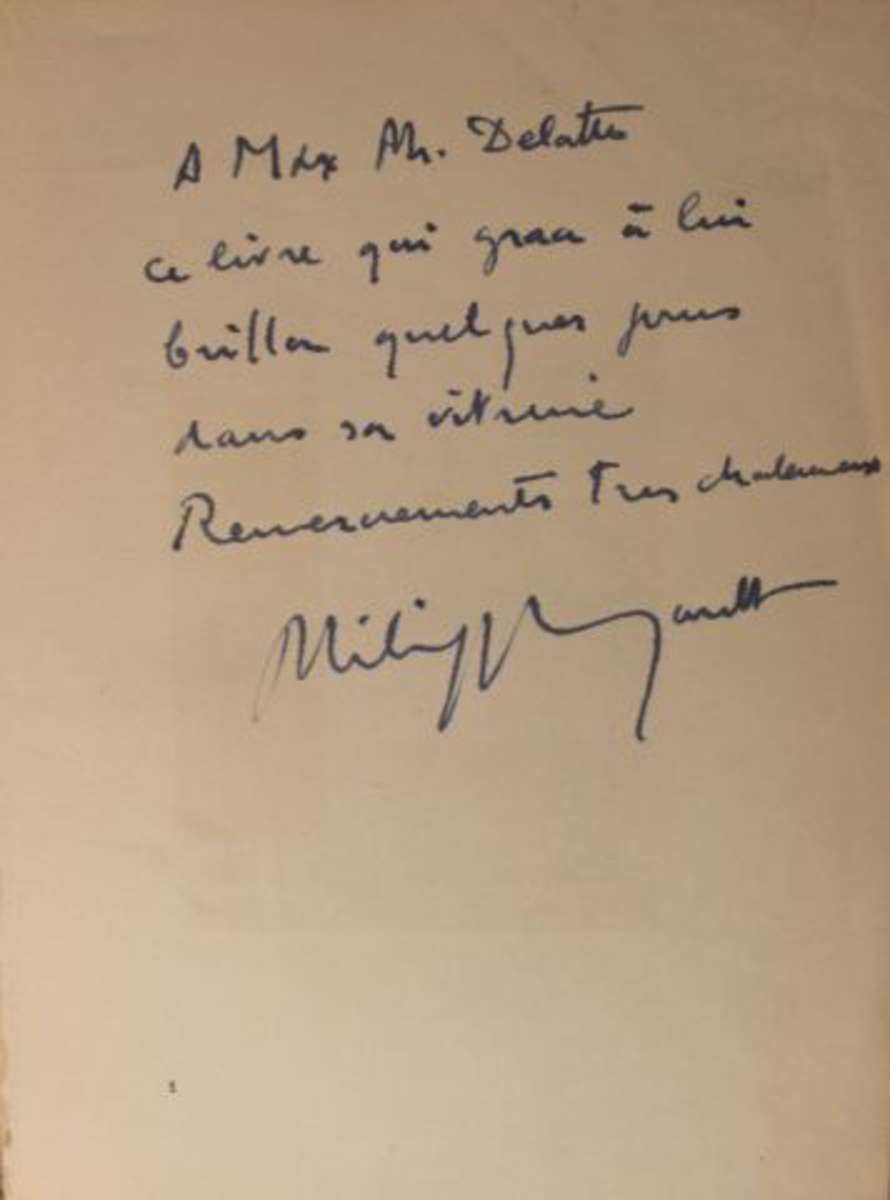 A Max Ph. Delatte
ce livre qui grace à lui
brillera quelques jours
dans sa vitrine
Remerciements Tres chaleureux
Philipp